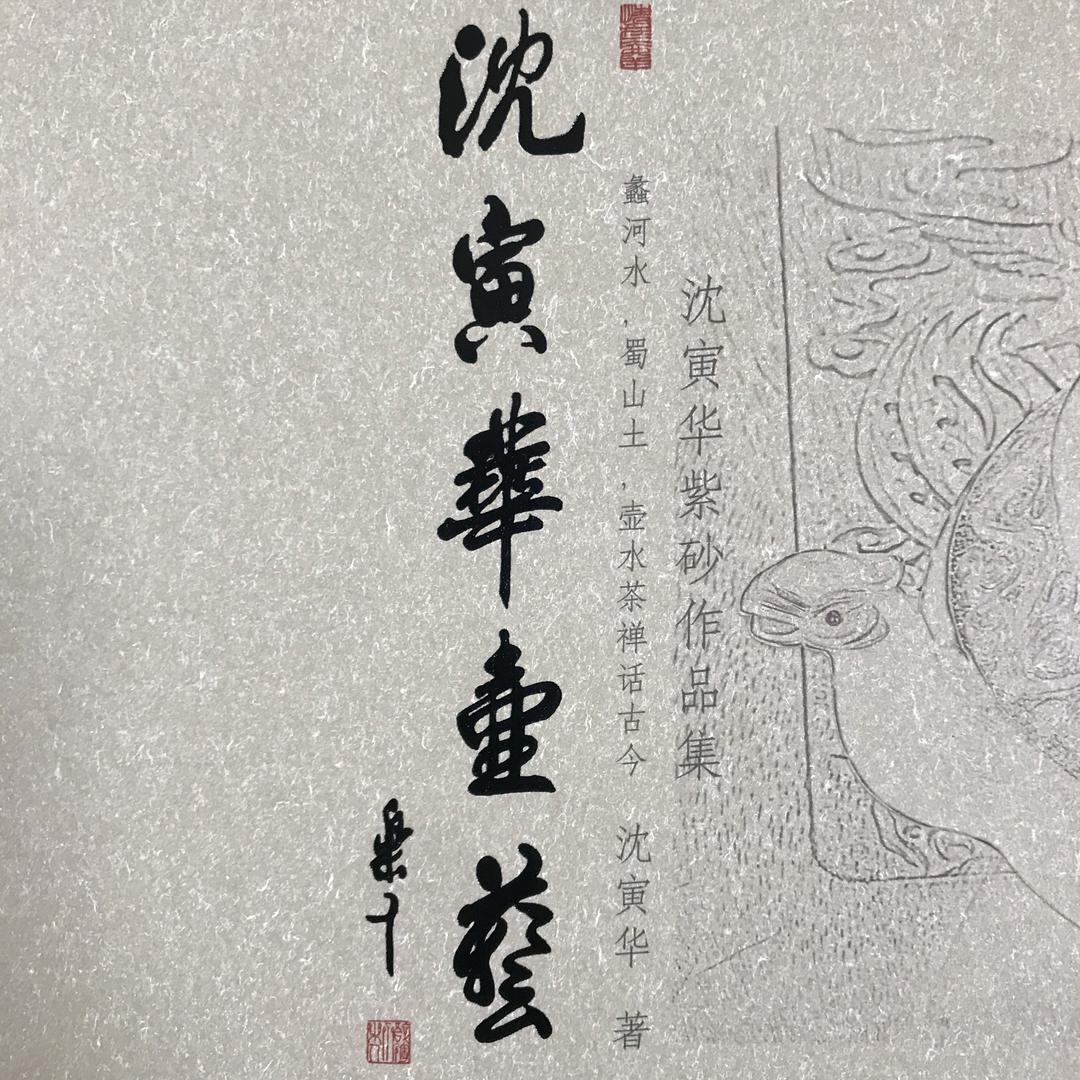 沈寅华紫砂作品集
蠡河水,蜀山土,壶水茶禅话古今
沈寅华 著
沈寅華壺藝